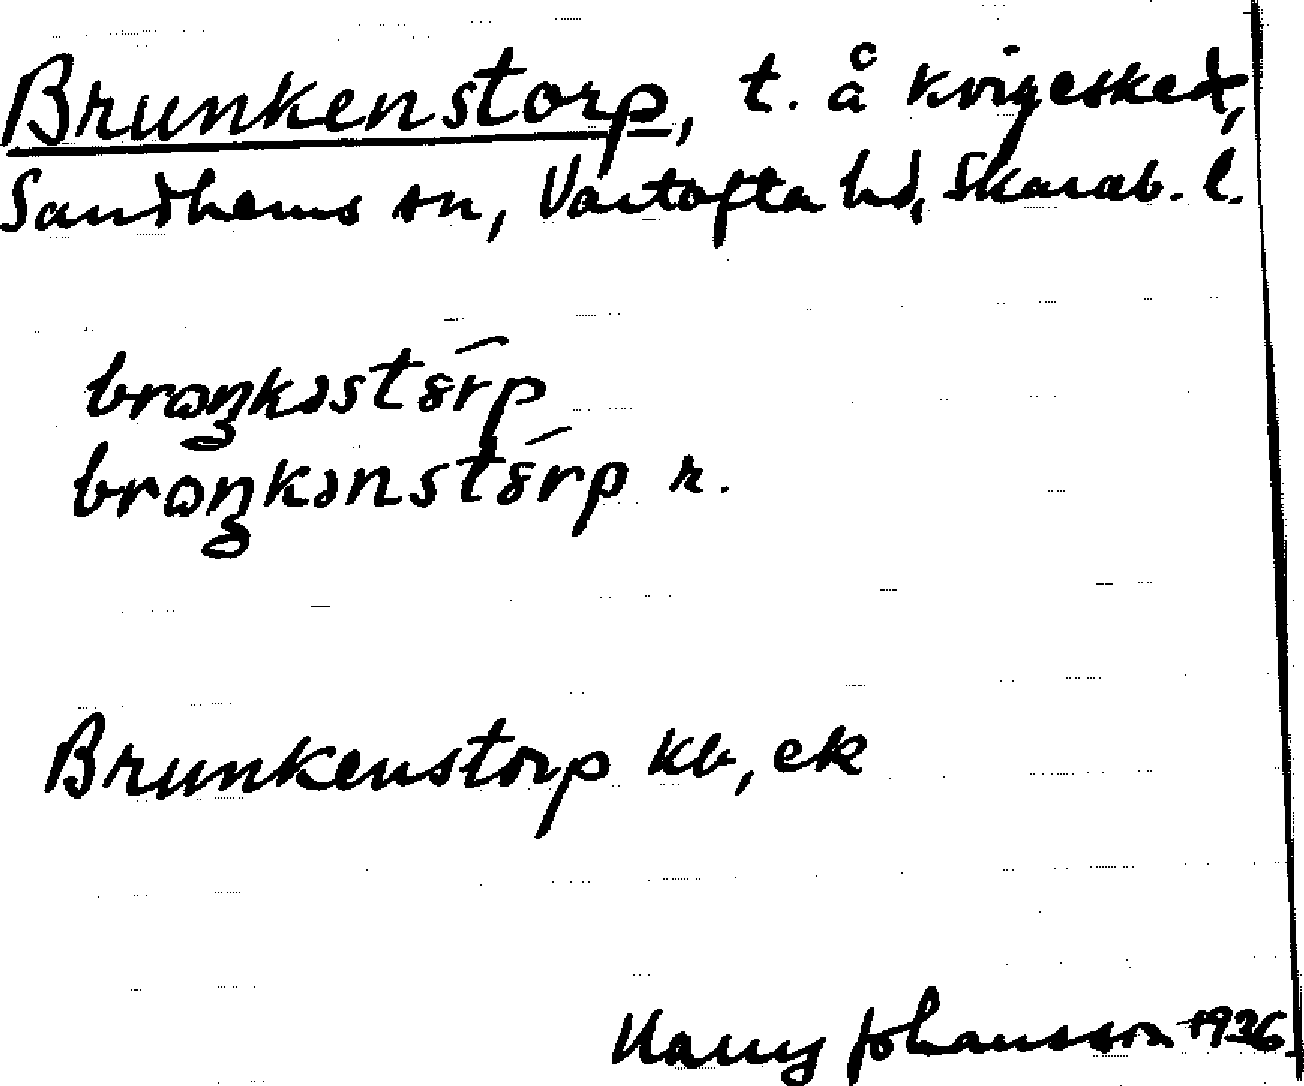 Brunkenstorp, t. å Kvigesked,
Sandhems sn, Vartofta hd, Skarab. l.
broŋkəstörp
broŋkənstörp r.
Brunkenstorp kb, ek
Harry Johansson 1936